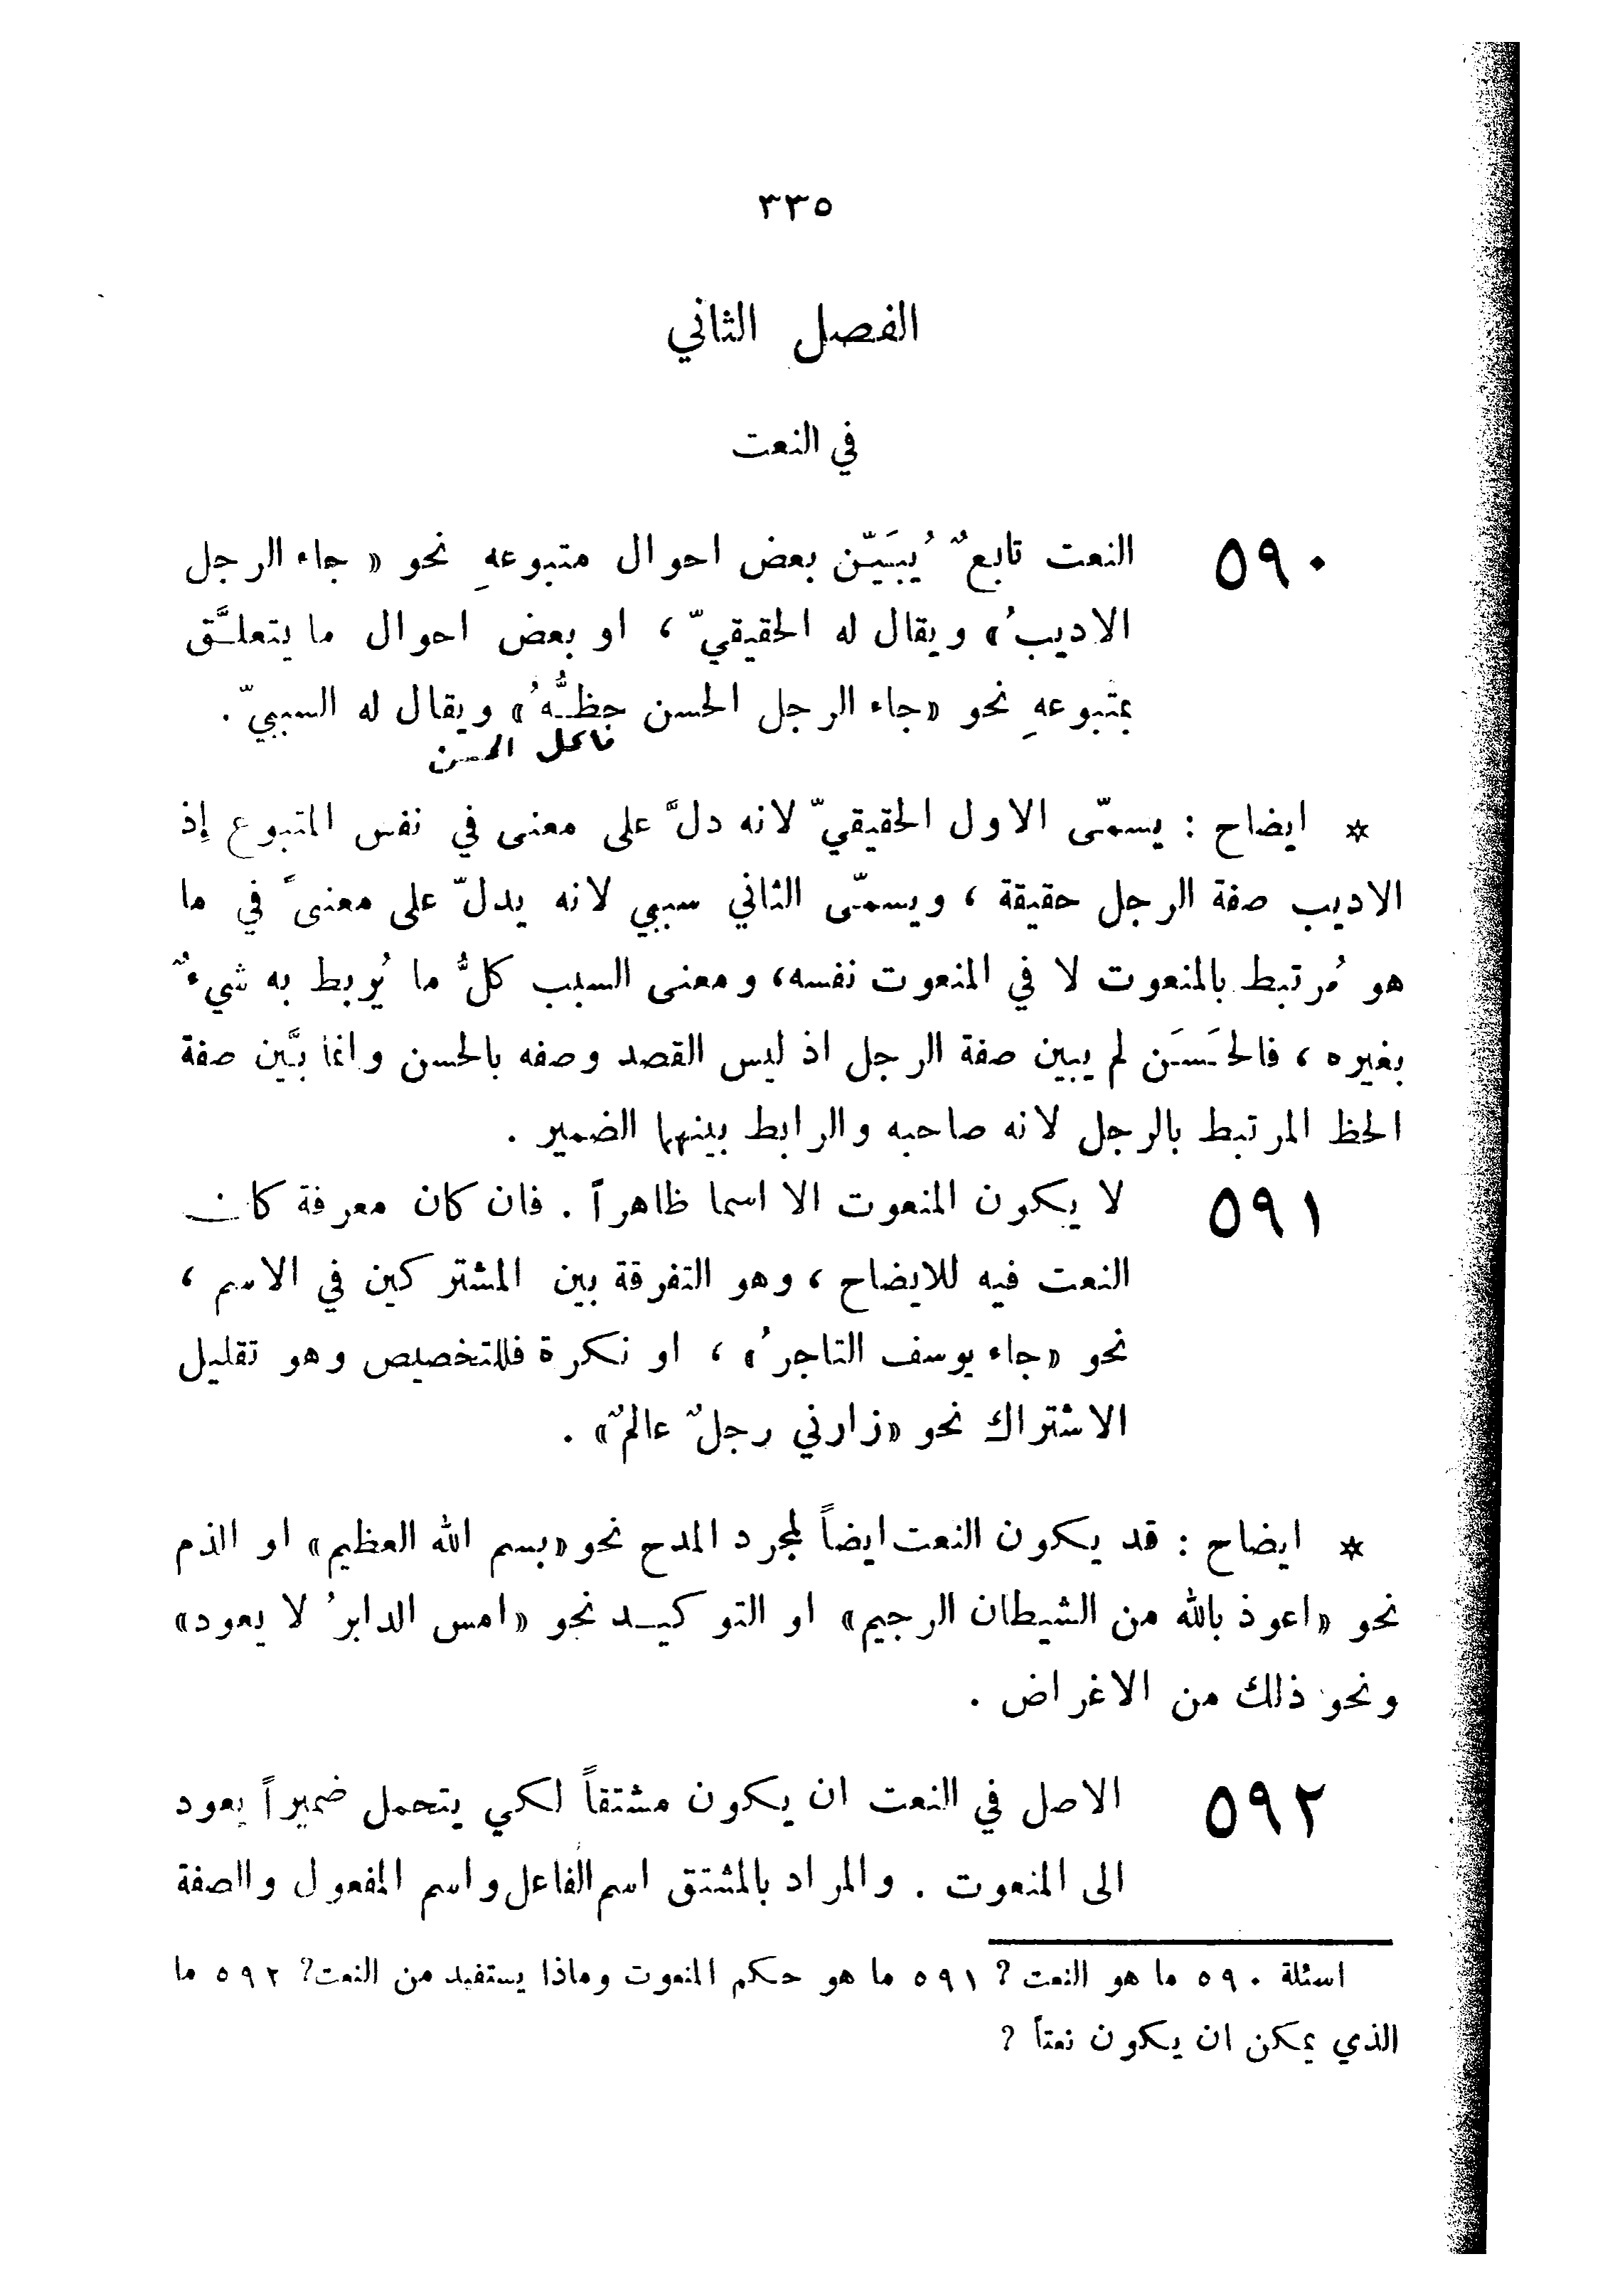 ٣٣٥
الفصل الثاني
في النعت
٥٩٠ النعت تابعٌ يُبيَّن بعض احوال متبوعهِ نحو « جاء الرجل
الاديبُ» ويقال له الحقيقيّ ، او بعض احوال ما يتعلَّق
بمتبوعهِ نحو «جاء الرجل الحسن حظُّهُ» ويقال له السببيّ .
فاعل الحسن
* ايضاح : يسمّى الاول الحقيقيّ لانه دلَّ على معنى في نفس المتبوع إذ
الاديب صفة الرجل حقيقة ، ويسمّى الثاني سببي لانه يدلّ على معنىً في ما
هو مُرتبط بالمنعوت لا في المنعوت نفسه ، ومعنى السبب كلُّ ما يُربط به شيءٌ
بغيره ، فالحَسَن لم يبين صفة الرجل اذ ليس القصد وصفه بالحسن وانما بيَّن صفة
الحظ المرتبط بالرجل لانه صاحبه والرابط بينهما الضمير .
٥٩١ لا يكون المنعوت الا اسما ظاهراً . فان كان معرفة كان
النعت فيه للايضاح ، وهو التفرقة بين المشتركين في الاسم ،
نحو «جاء يوسف التاجرُ» ، او نكرة فللتخصيص وهو تقليل
الاشتراك نحو «زارني رجلٌ عالمٌ» .
* ايضاح : قد يكون النعت ايضاً لمجرد المدح نحو «بسم الله العظيم» او الذم
نحو «اعوذ بالله من الشيطان الرجيم» او التوكيد نحو «امس الدابرُ لا يعود»
ونحو ذلك من الاغراض .
٥٩٢ الاصل في النعت ان يكون مشتقاً لكي يتحمل ضميراً يعود
الى المنعوت . والمراد بالمشتق اسم الفاعل واسم المفعول والصفة
اسئلة ٥٩٠ ما هو النعت ؟ ٥٩١ ما هو حكم المنعوت وماذا يستفيد من النعت؟ ٥٩٢ ما
الذي يمكن ان يكون نعتاً ؟